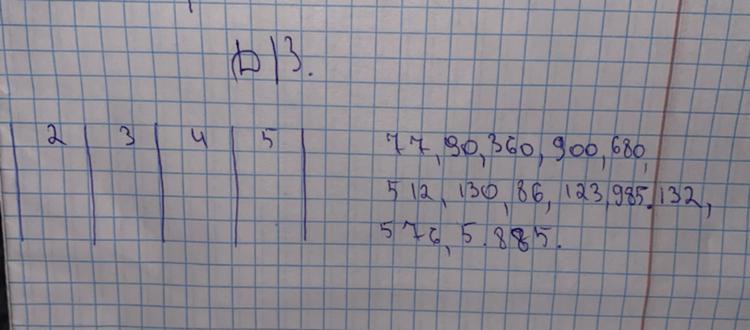 Д/З.
2 3 4 5
77, 90, 360, 900, 680,
512, 130, 86, 123, 985. 132,
576, 5. 885.